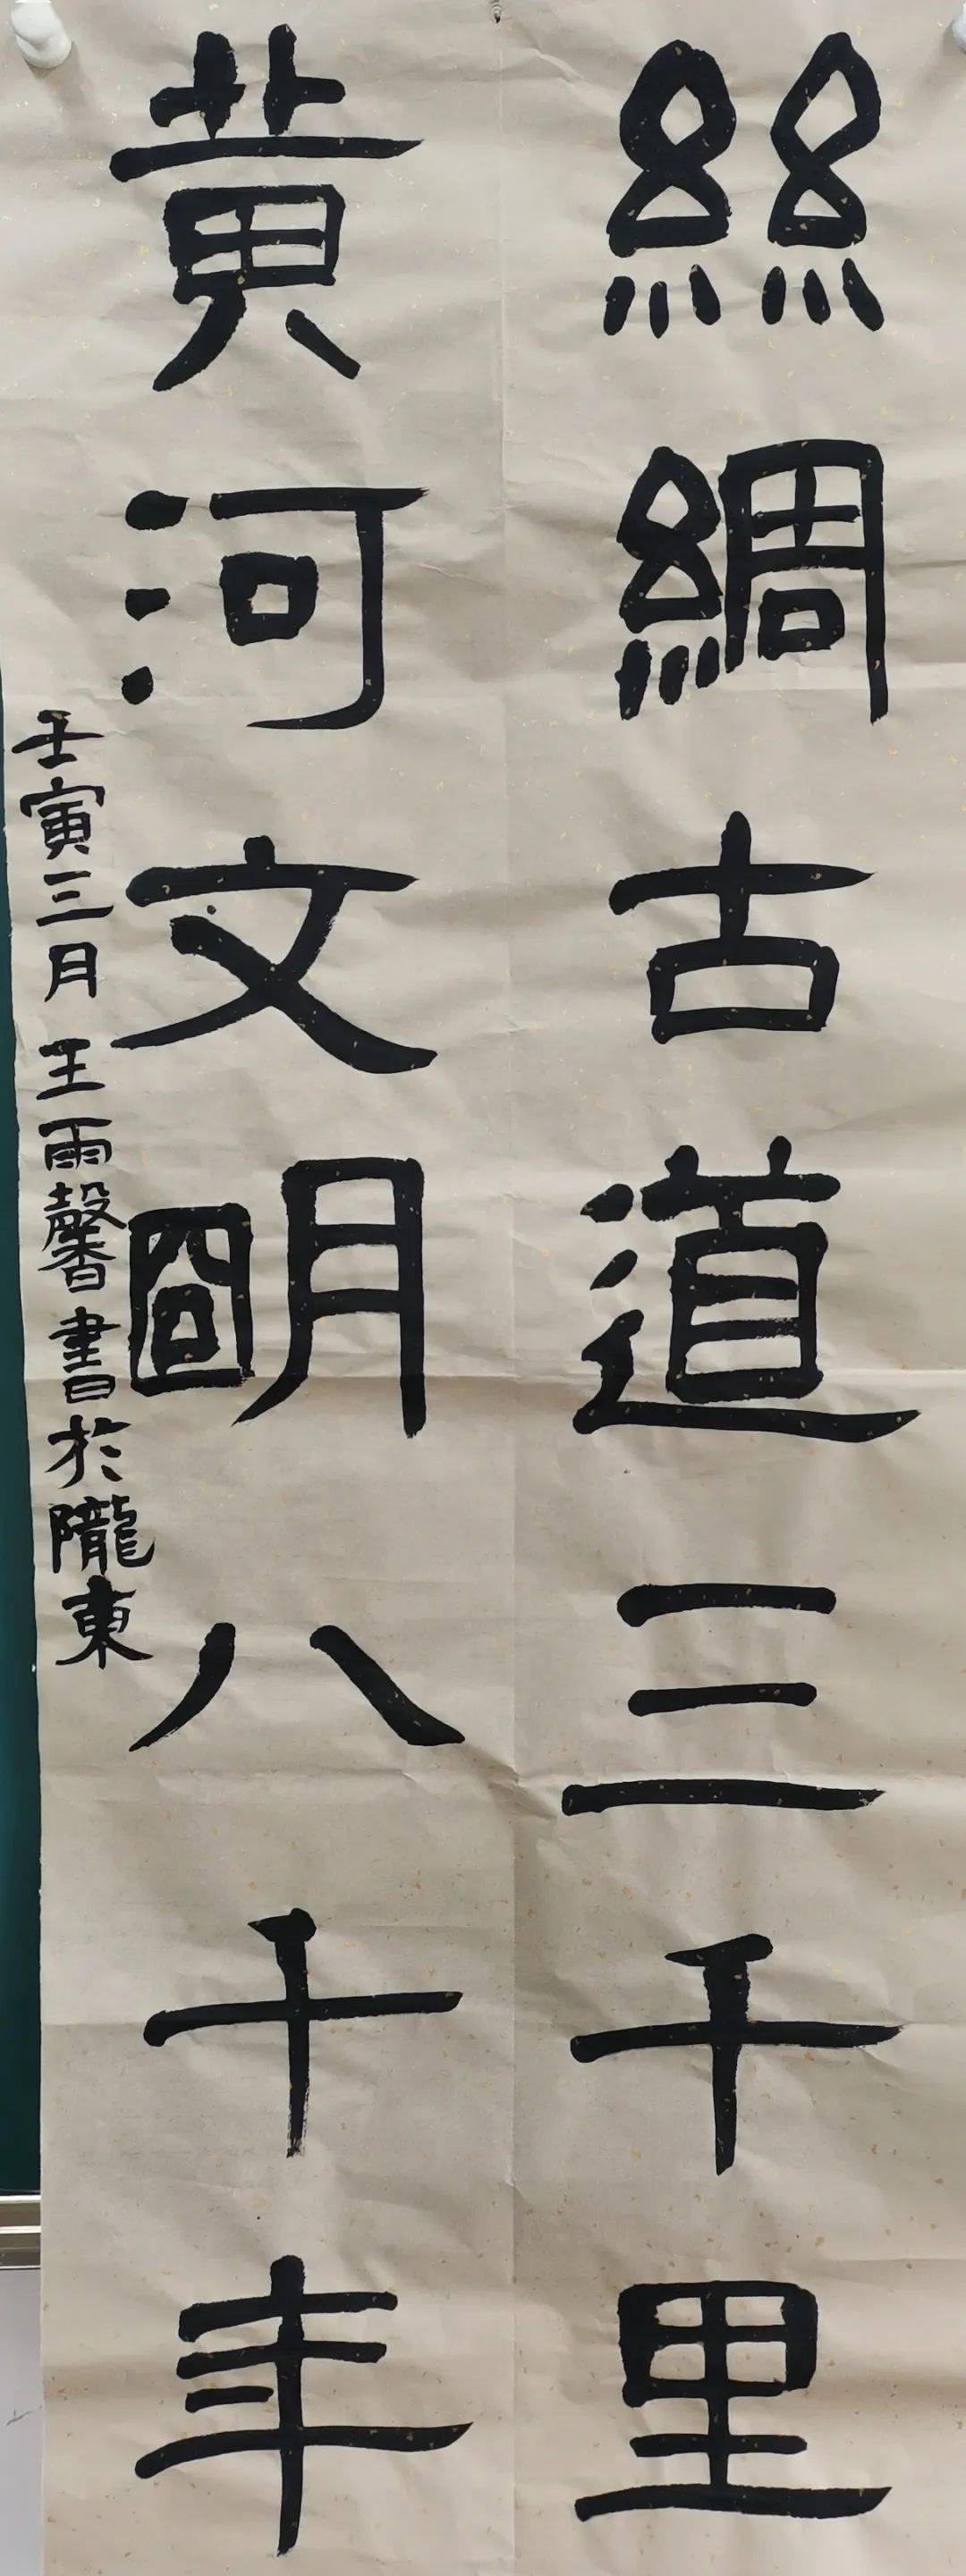 絲綢古道三千里
黃河文明八千年
壬寅三月王雨馨書於隴東